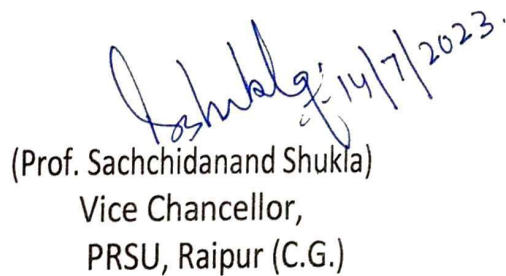 SShukla 14/7/2023.
(Prof. Sachchidanand Shukla)
Vice Chancellor,
PRSU, Raipur (C.G.)